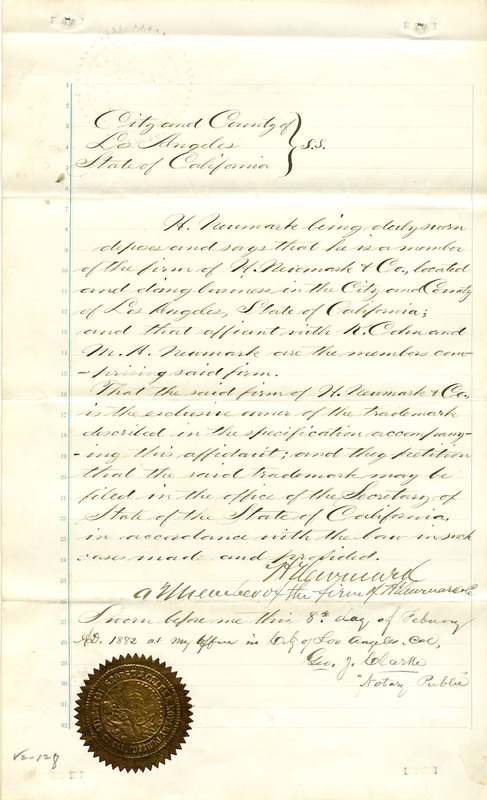 City and County of
Los Angeles } S.S.
State of California
H. Newmark being duly sworn
deposes and says that he is a member
of the firm of H. Newmark & Co., located
and doing business in the City and County
of Los Angeles, State of California;
and that affiant with K. Cohn and
M. A. Newmark are the members com-
-prising said firm.
That the said firm of H. Newmark & Co.,
is the exclusive owner of the trademark
described in the specification accompany-
-ing this affidavit; and they petition
that the said trademark may be
filed in the office of the Secretary of
State of the State of California,
in accordance with the law in such
cases made and provided.
H Newmark
a Member of the firm of H Newmark & Co
Sworn before me this 8th day of February
AD. 1882 at my office in City of Los Angeles. Cal,
Geo. J. Clarke
"Notary Public
V2-128